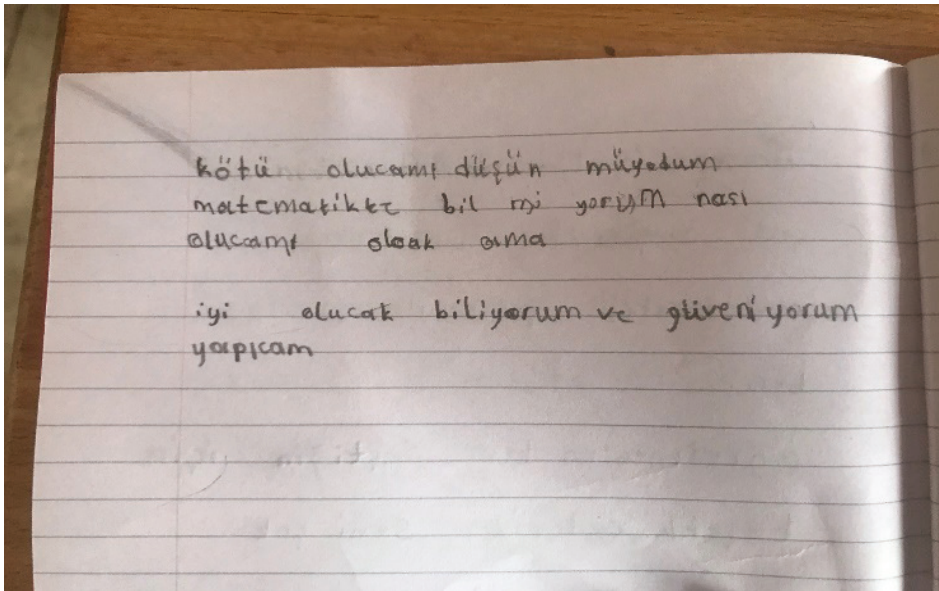 kötü olucamı düşün müyodum
matematikte bil mi yorum nası
olucamı oloak ama
iyi olucak biliyorum ve güveniyorum
yapıcam